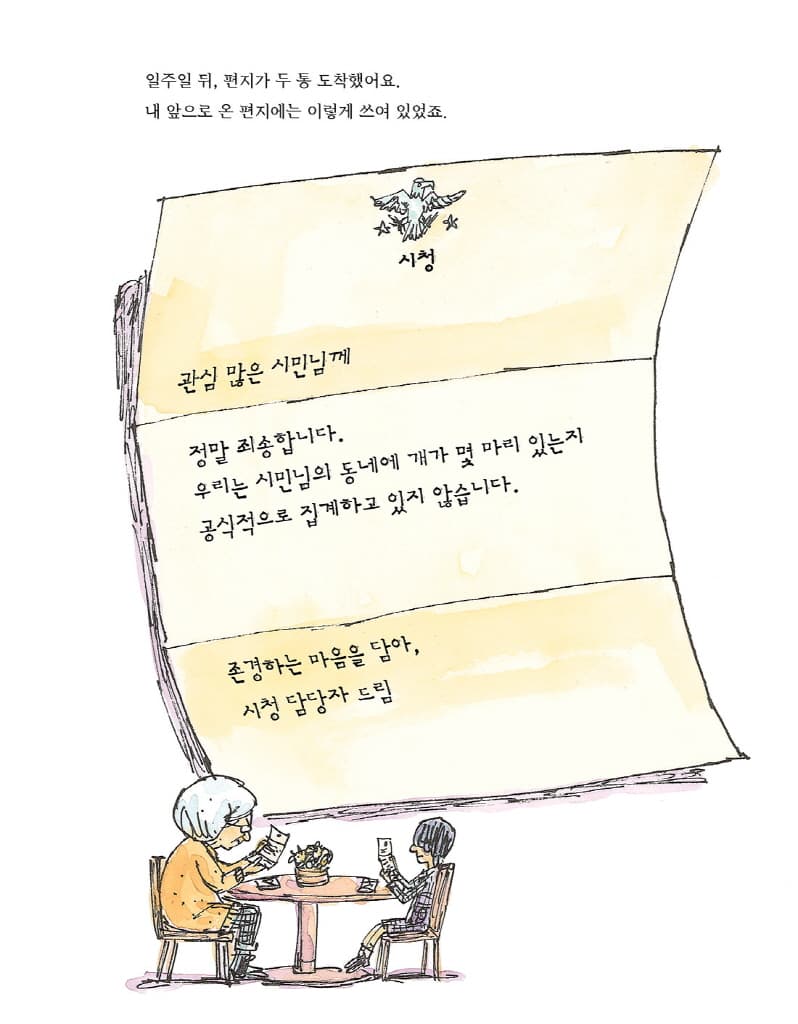 일주일 뒤, 편지가 두 통 도착했어요.
내 앞으로 온 편지에는 이렇게 쓰여 있었죠.
시청
관심 많은 시민님께
정말 죄송합니다.
우리는 시민님의 동네에 개가 몇 마리 있는지
공식적으로 집계하고 있지 않습니다.
존경하는 마음을 담아,
시청 담당자 드림